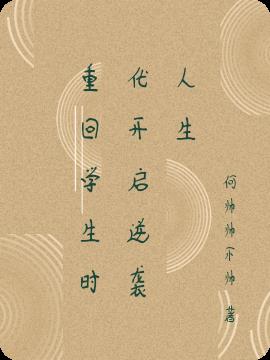 重回学生时
代开启逆袭
人生
何帅帅不帅 著